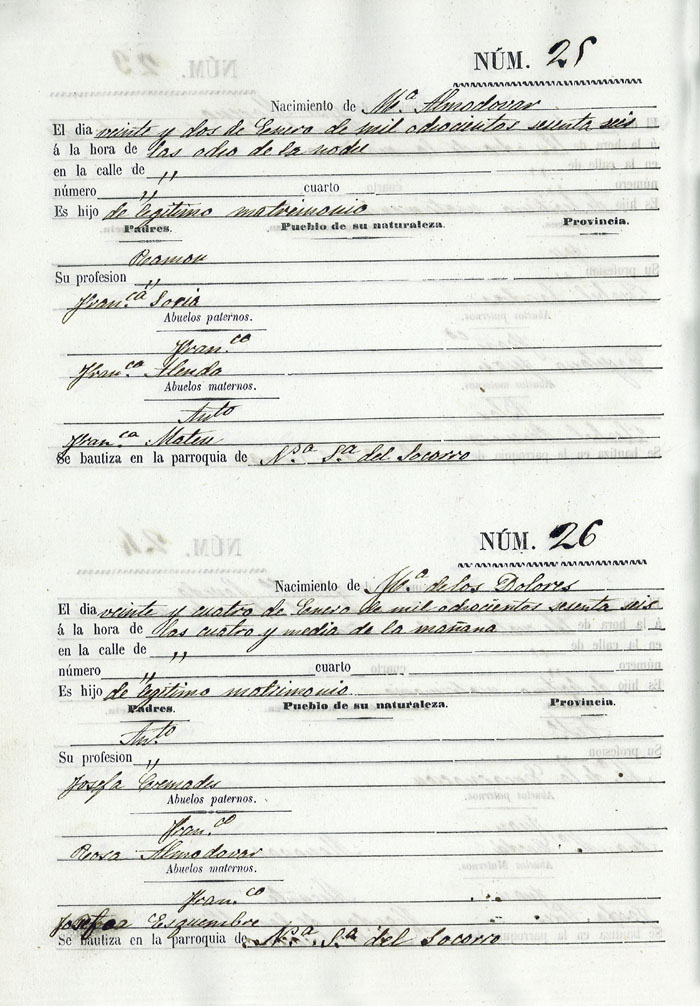 NÚM. 25
Nacimiento de Mª Almodovar
El dia veinte y dos de Enero de mil odiocientos sesenta seis
á la hora de las odio de la node
en la calle de "
número " cuarto
Es hijo de legitimo matrimonio
Padres. Pueblo de su naturaleza. Provincia.
Ramon
Su profesion "
Franca Soria
Abuelos paternos.
Franco
Franca Alenda
Abuelos maternos.
Anto
Franca Mateu
Se bautiza en la parroquia de Nsa Sa del Socorro
NÚM. 26
Nacimiento de Mª de los Dolores
El dia veinte y cuatro de Enero de mil odiocientos sesenta seis
á la hora de las cuatro y media de la mañana
en la calle de "
número " cuarto
Es hijo de legitimo matrimonio
Padres. Pueblo de su naturaleza. Provincia.
Anto
Su profesion "
Josefa Cremades
Abuelos paternos.
Franco
Rosa Almodovar
Abuelos maternos.
Franco
Josefa Esquembre
Se bautiza en la parroquia de Nsa Sa del Socorro